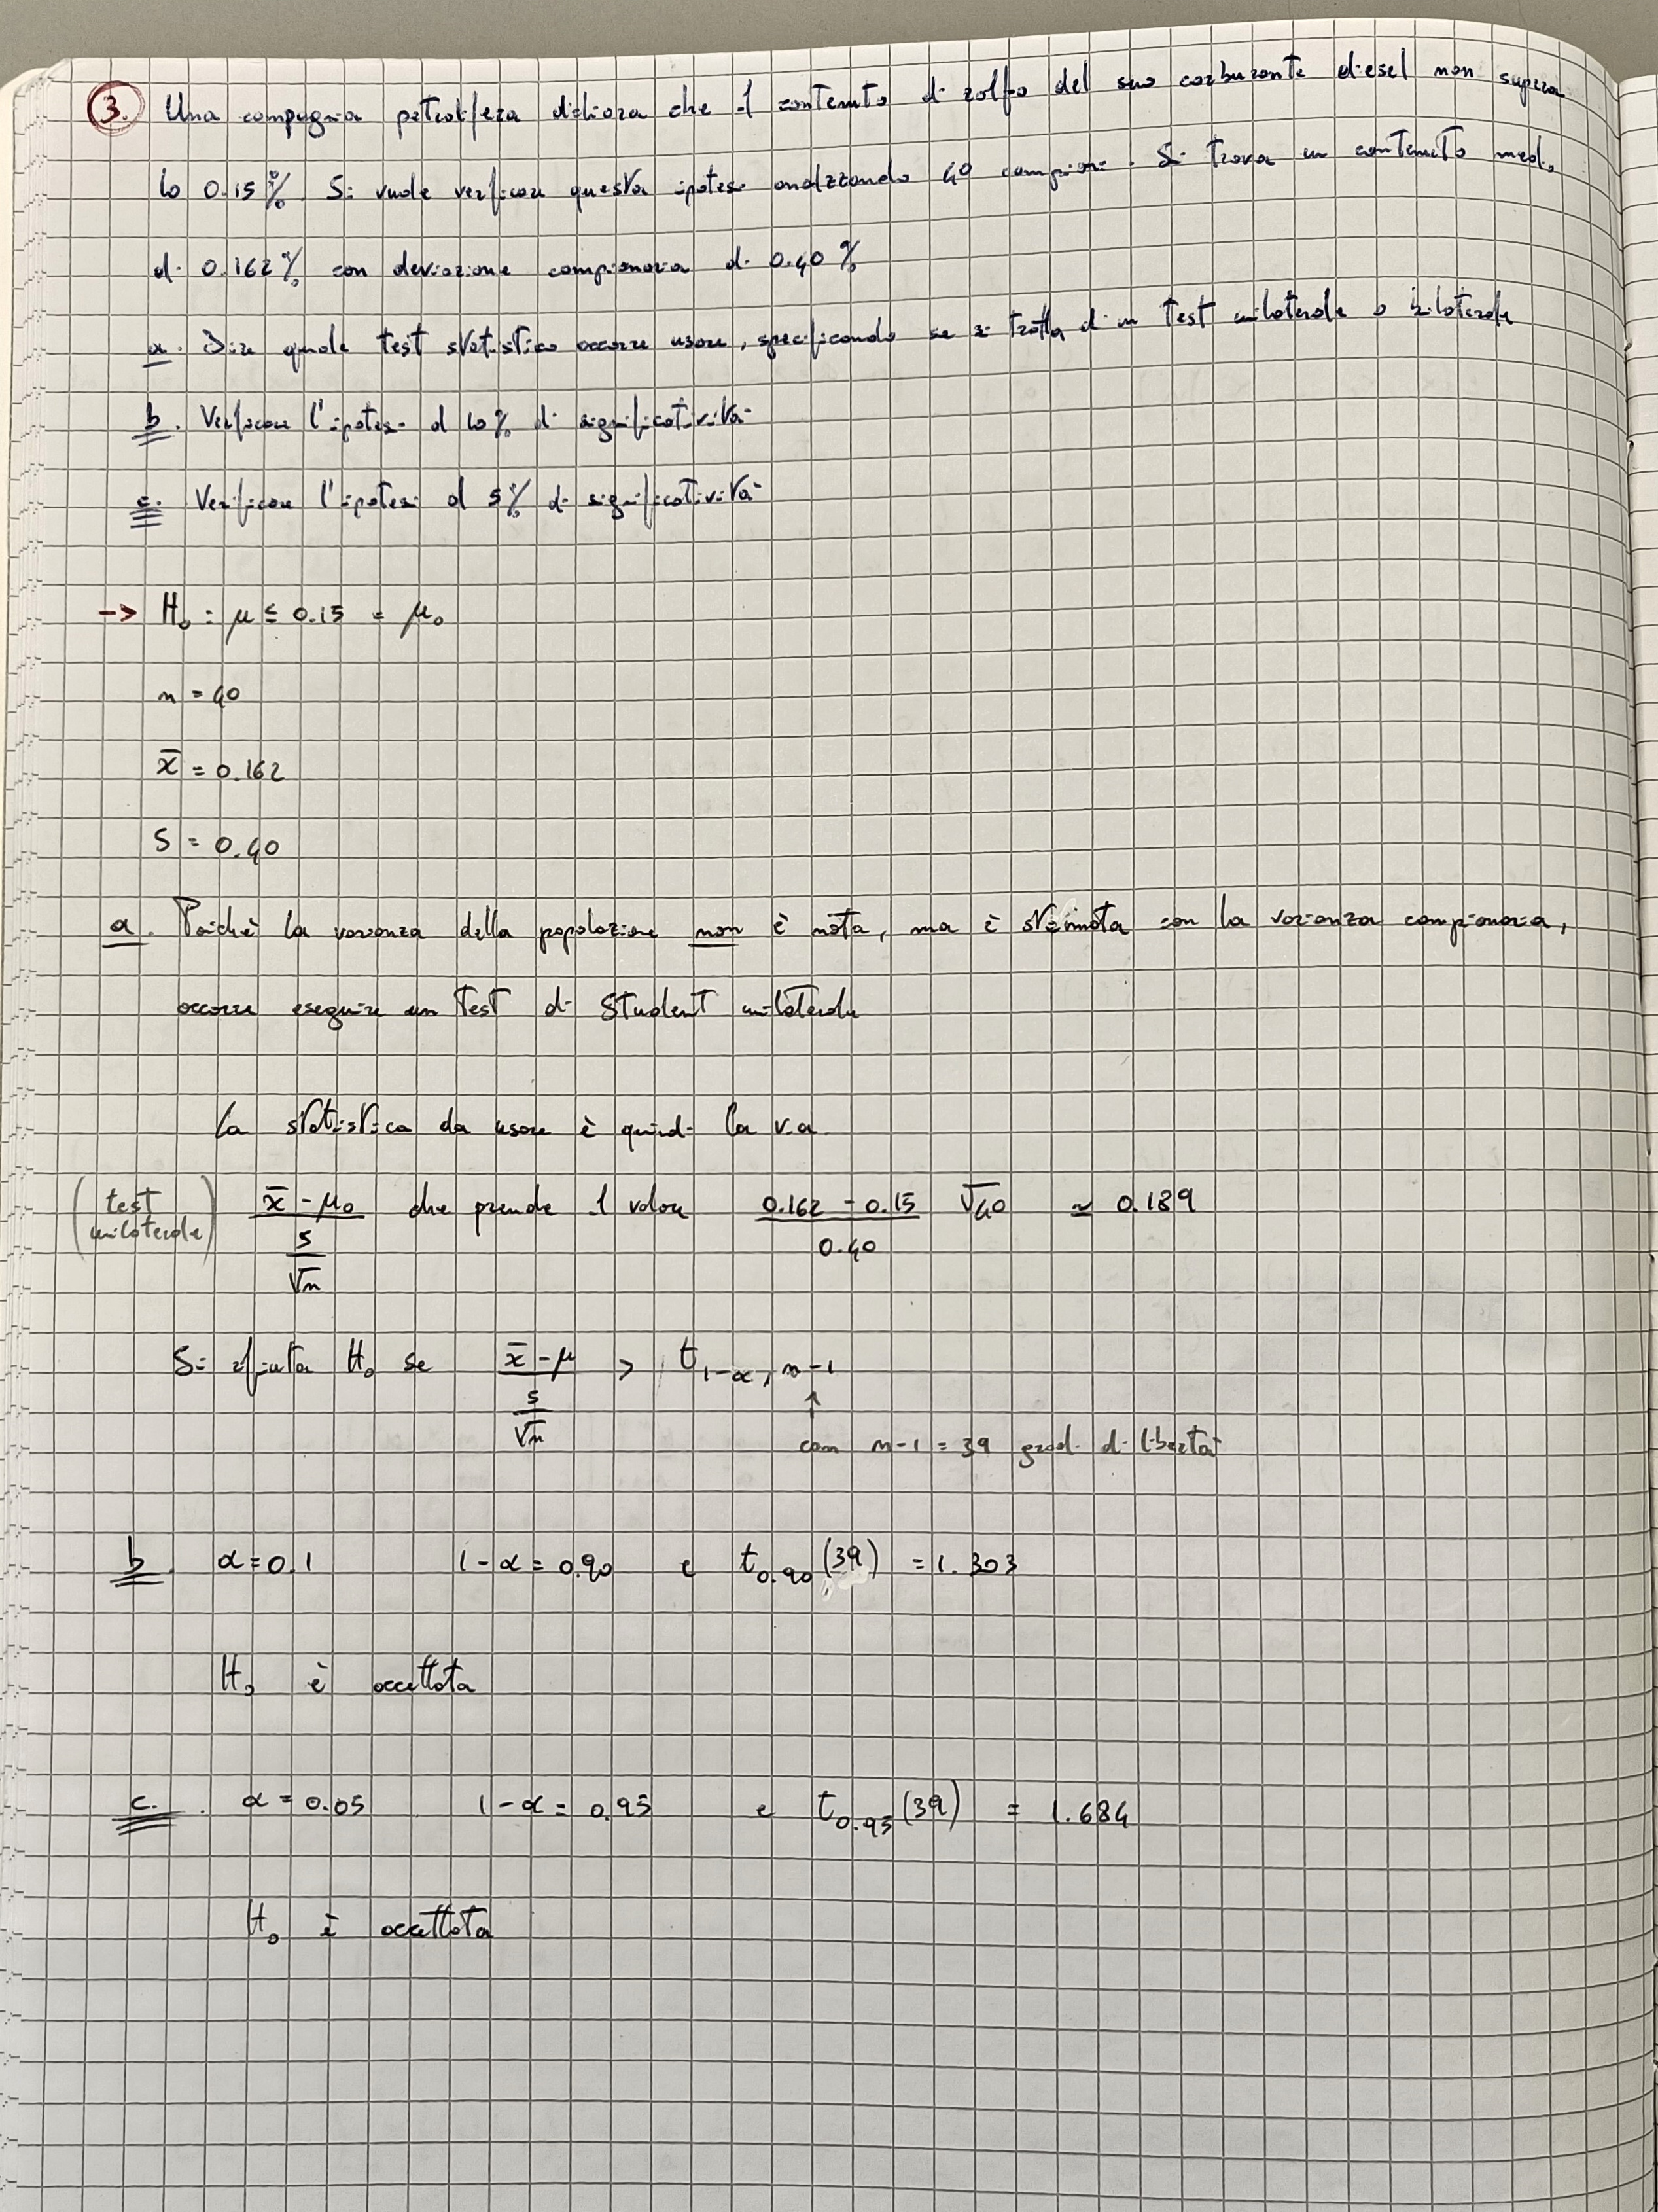 3. Una compagnia petrolifera dichiara che il contenuto di zolfo del suo carburante diesel non supera
lo 0.15%. Si vuole verificare questa ipotesi analizzando 40 campioni. Si trova un contenuto medio
di 0.162% con deviazione campionaria di 0.40%
a. Dire quale test statistico occorre usare, specificando se si tratta di un test unilaterale o bilaterale
b. Verificare l'ipotesi al 10% di significatività
c. Verificare l'ipotesi al 5% di significatività
→ H₀ : μ ≤ 0.15 = μ₀
n = 40
x̄ = 0.162
S = 0.40
a. Poiché la varianza della popolazione non è nota, ma è stimata con la varianza campionaria,
occorre eseguire un test di Student unilaterale
La statistica da usare è quindi la v.a.
(test unilaterale) (x̄ - μ₀)/(s/√n) che prende il valore (0.162 - 0.15)/0.40 √40 ≃ 0.189
Si rifiuta H₀ se (x̄ - μ)/(s/√n) > t₁₋α, n-1
↑
con n-1 = 39 gradi di libertà
b. α = 0.1 1-α = 0.90 e t₀.₉₀ (39) = 1.303
H₀ è accettata
c. α = 0.05 1-α = 0.95 e t₀.₉₅ (39) = 1.684
H₀ è accettata